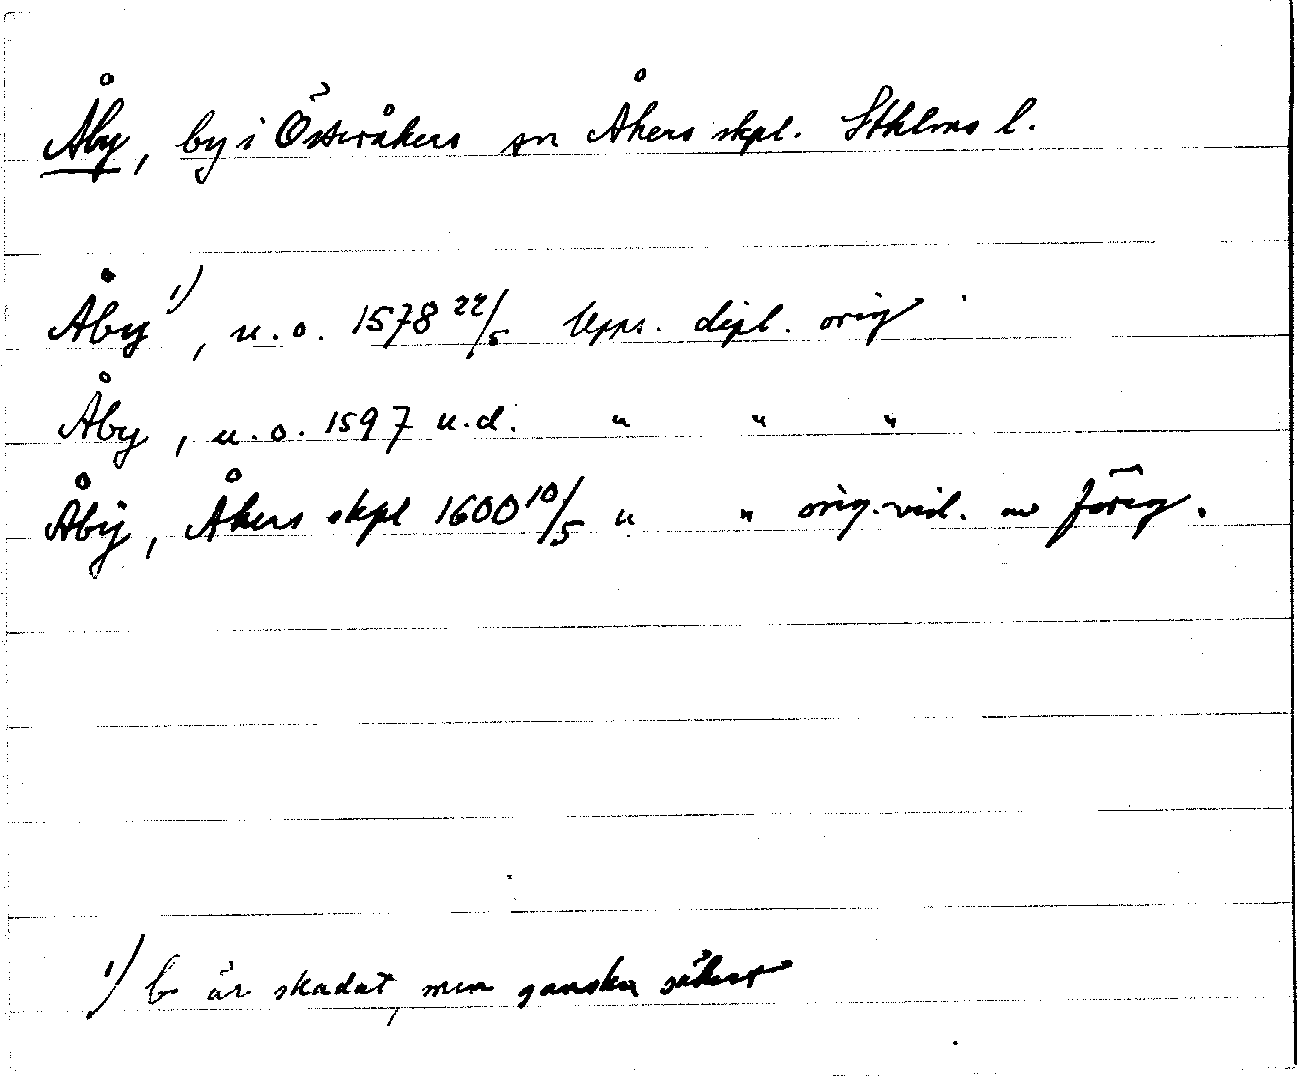 Åby, by i Österåkers sn Åkers skpl. Sthlms l.
Åby 1), u.o. 1578 22/5 Upps. dipl. orig
Åby, u.o. 1597 u.d. " " "
Åbÿ, Åkers skpl 1600 10/5 " " orig.-vid. av föreg.
1) b är skadat, men ganska säkert